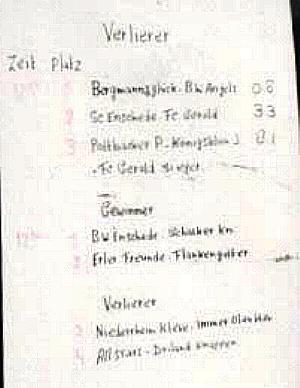 Verlierer
Zeit Platz
Bergmannsglück - BW Angels 0 8
2 Sc Enschede - Fc Gerald 3 3
3 Königsblau 0 1
- Fc Gerald Sieger
Gewinner
1 BW Enschede - Schalker Kn
2 Erler Freunde - Flankengeber
Verlierer
3 Niederrhein Kleve - Immer Blau
4 Allstars - Knappen